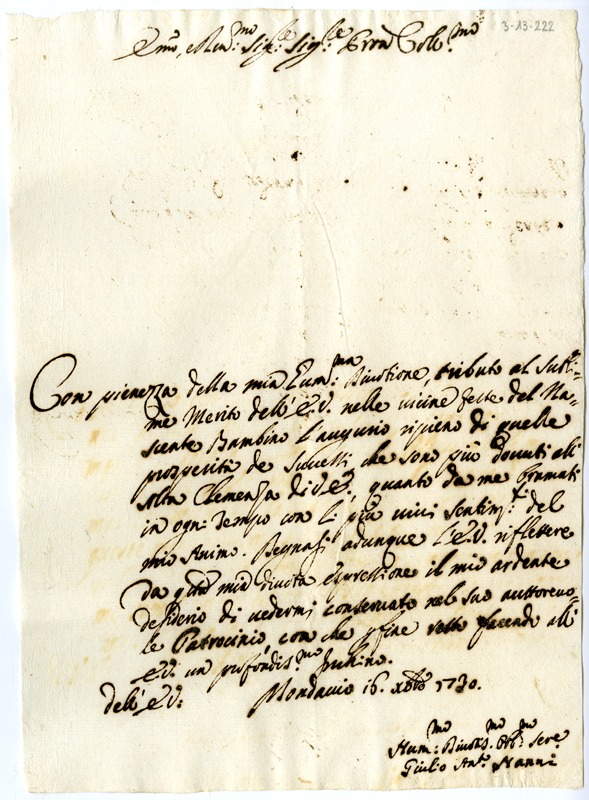 3-13-222
Emo, e Rmo: Sigre: Sigre Pron Colmo:
Con pienezza della mia Umma: Divotione, tributo al Subli=
me Merito dell' E.V. nelle vicine feste del Na=
scente Bambino l'augurio ripieno di quelle
prosperità che sono più dovuti all'
Alta Clemenza di V.E., quanto da me bramati
in ogni tempo con li più vivi sentimti: del
mio Animo. Degnasi adunque l'E.V. riflettere
da questa mia divota espressione il mio ardente
desiderio di vedermi conservato nel suo auttorevo=
le Patrocinio, con che p fine resto facendo all'
E.V. un profondismo Inchino.
Dell' E.V: Mondavio 16. Xbre 1730.
Hummo: Divotismo. Obbmo: Serre
Giulio Anto: Nanni